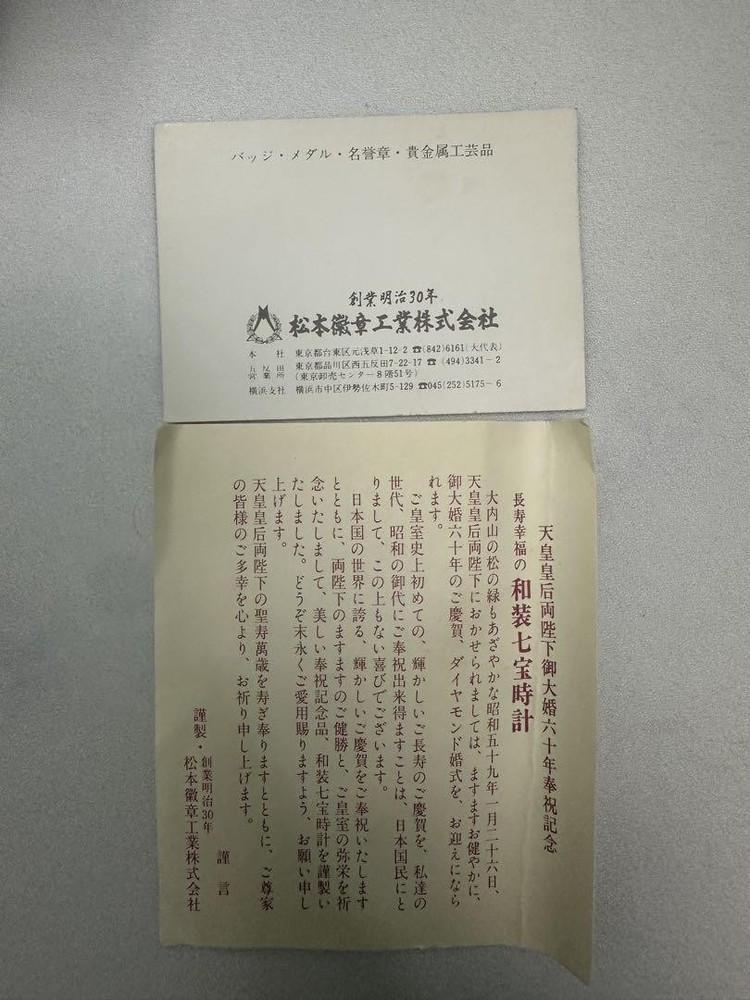 バッジ・メダル・名誉章・貴金属工芸品
創業明治30年
松本徽章工業株式会社
本社 東京都台東区元浅草1-12-2 ☎(842)6161(大代表)
五反田営業所 東京都品川区西五反田7-22-17 ☎(494)3341-2
(東京卸売センター8階51号)
横浜支社 横浜市中区伊勢佐木町5-129 ☎045(252)5175-6
天皇皇后両陛下御大婚六十年奉祝記念
長寿幸福の 和装七宝時計
大内山の松の緑もあざやかな昭和五十九年一月二十六日、
天皇皇后両陛下におかせられましては、ますますお健やかに、
御大婚六十年のご慶賀、ダイヤモンド婚式を、お迎えになら
れます。
ご皇室史上初めての、輝かしいご長寿のご慶賀を、私達の
世代、昭和の御代にご奉祝出来得ますことは、日本国民にと
りまして、この上もない喜びでございます。
日本国の世界に誇る、輝かしいご慶賀をご奉祝いたします
とともに、両陛下のますますのご健勝と、ご皇室の弥栄を祈
念いたしまして、美しい奉祝記念品、和装七宝時計を謹製い
たしました。どうぞ末永くご愛用賜りますよう、お願い申し
上げます。
天皇皇后両陛下の聖寿萬歳を寿ぎ奉りますとともに、ご尊家
の皆様のご多幸を心より、お祈り申し上げます。
謹言
謹製・創業明治30年
松本徽章工業株式会社